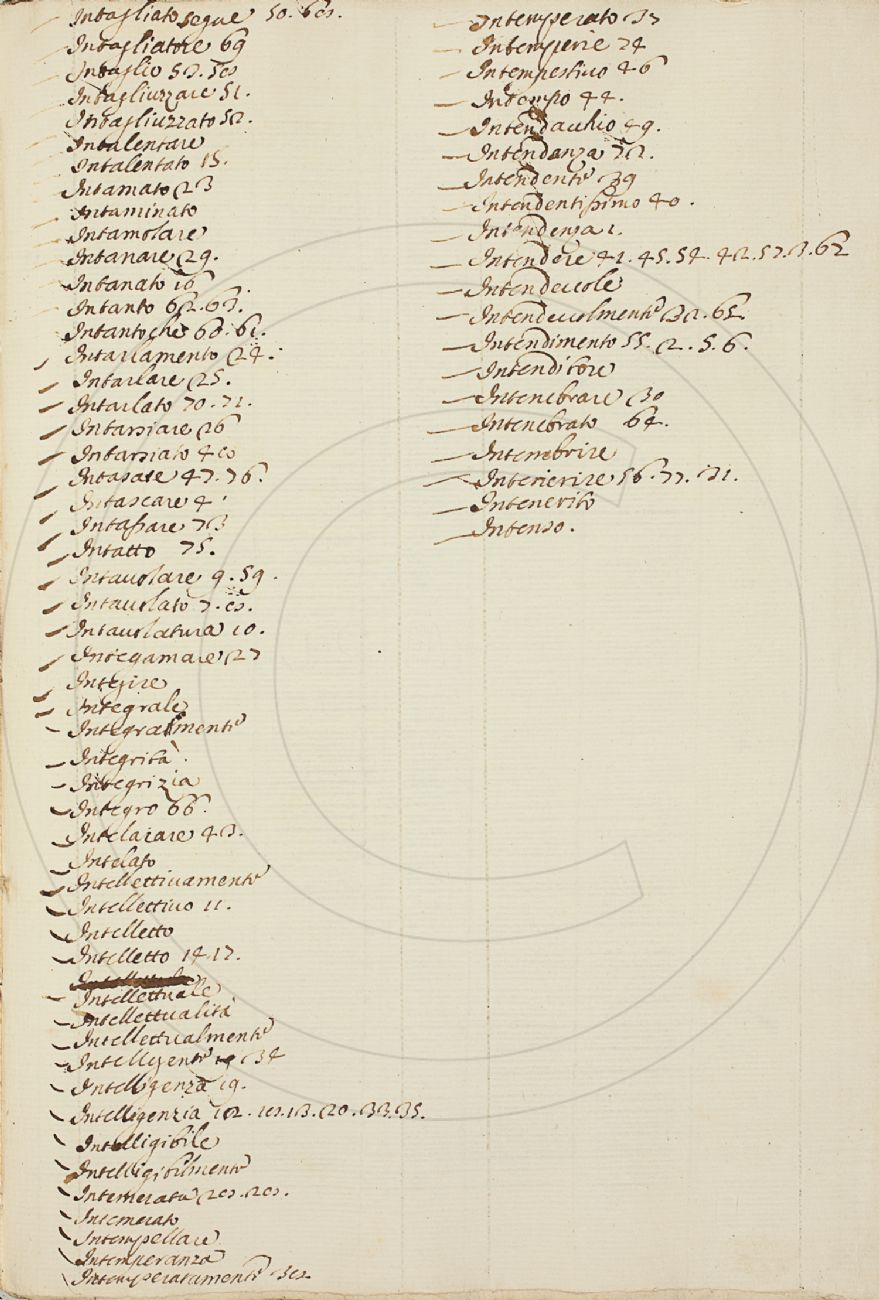 Intagliato segue 50. 68.
Intagliatore 69
Intaglio 53. 58
Intagliuzzare 51.
Intagliuzzato 52.
Intalentare
Intalentato 15.
Intamato 23
Intaminato
Intamolare
Intanare 29.
Intanato 16
Intanto 62. 63.
Intantoche 60. 61.
Intarlamento 24.
Intarlare 25.
Intarlato 70. 71.
Intarsiare 26
Intarsiato 48
Intasare 47. 76.
Intascare 4
Intassare 73
Intatto 75.
Intavolare 9. 59.
Intavolato 7. 8.
Intavolatura 10.
Integamare 27
Integire
Integrale
Integralmente
Integrità.
Integrizia
Integro 66.
Intelaiare 43.
Intelato
Intellettivamente
Intellettivo 11.
Intelletto
Intelletto 14. 17.
Intellettuale
Intellettualità
Intellettualmente
Intelligente 34
Intelligenza 19.
Intelligenzia 12. 18. 13. 20. 33. 35.
Intelligibile
Intelligibilmente
Intemerata 28. 28.
Intemerato
Intempellare
Intemperanza
Intemperatamente 38
Intemperato 37
Intemperie 74
Intempestivo 46
Intempo 44.
Intendacchio 49.
Intendanza 72.
Intendente 39
Intendentissimo 40.
Intendenza 1.
Intendere 41. 45. 54. 42. 57. 3. 62
Intendevole
Intendevolmente 32. 65.
Intendimento 55. 2. 5. 6.
Intenditore
Intenebrare 30
Intenebrato 64.
Intenebrire
Intenerire 56. 77. 31.
Intenerito
Intenso.